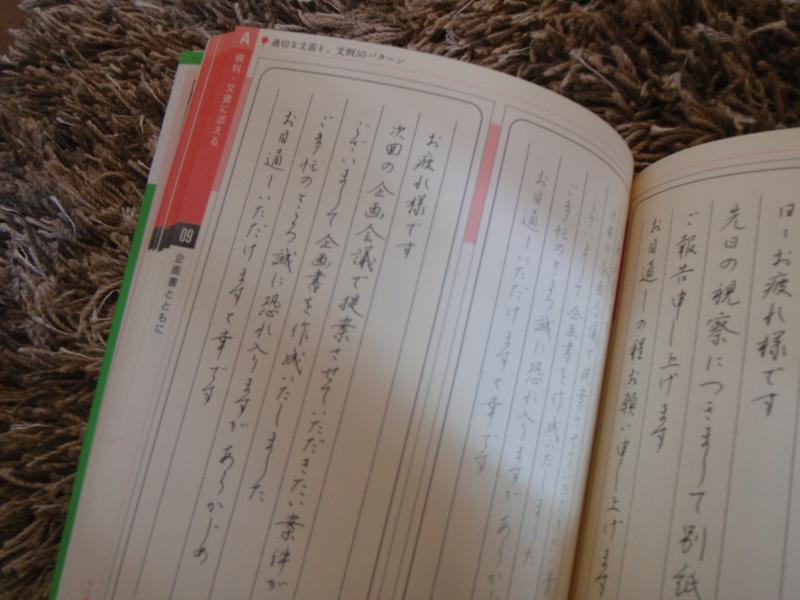 適切な文面を。文例50パターン
A
資料・文書に添える
09
企画書とともに
お疲れ様です
次回の企画会議で提案させていただきたい案件が
ございまして企画書を作成いたしました
ご多忙のところ誠に恐れ入りますが あらかじめ
お目通しいただけますと幸です
次回の企画会議で提案させていただきたい案
ございまして企画書を作成いたしました
ご多忙のところ誠に恐れ入りますが あらか
お目通しいただけますと幸です
日々お疲れ様です
先日の視察につきまして別紙
ご報告申し上げます
お目通しの程お願い申し上げます